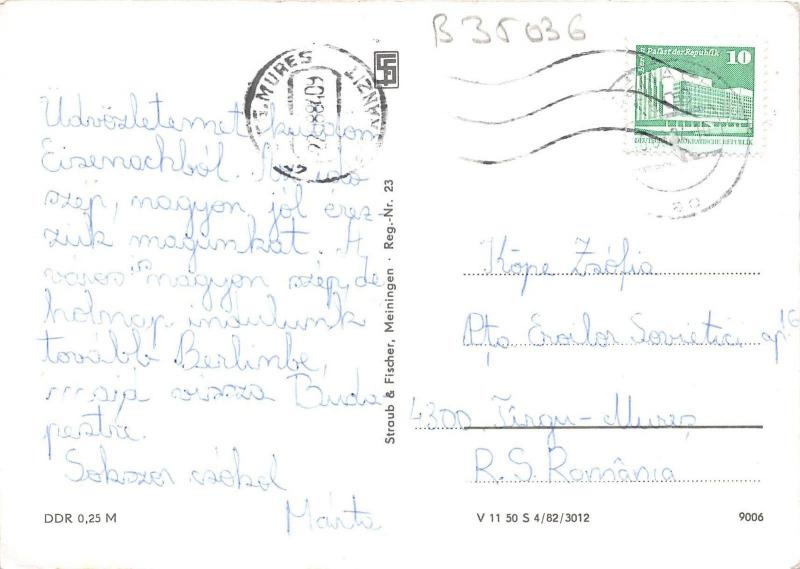 B 35 036
Palast der Republik 10
DEUTSCHE DEMOKRATISCHE REPUBLIK
MUREȘ
Üdvözletemet küldöm
Eisenachból. Az idő
szép, nagyon jól érez-
zük magunkat. A
város is nagyon szép, de
holnap indulunk
tovább Berlinbe,
majd vissza Buda-
pestre.
Sokszor csókol
Márta
Straub & Fischer, Meiningen · Reg.-Nr. 23
Köpe Zsófia
Pța Eroilor Sovietici ap 16
4300 Tîrgu-Mureș
R.S. România
DDR 0,25 M
V 11 50 S 4/82/3012
9006